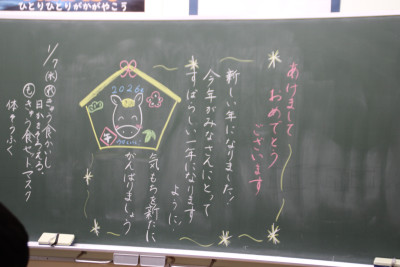 ひとりひとりがかがやこう
あけまして
おめでとう
ございます
新しい年になりました!
今年がみなさんにとって
すばらしい一年になります
ように!
気もちを新たに
がんばりましょう
2026年
1/7(水)
きゅう食かいし
きゅう食セット マスク
体そうふく